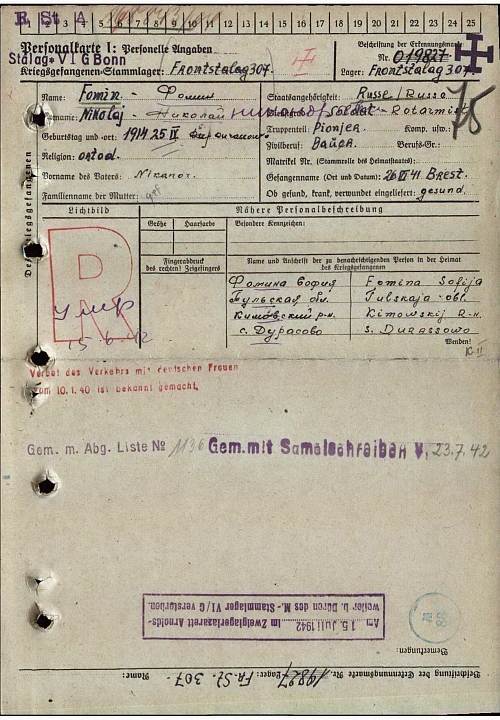 R. St. A
1 2 3 4 5 6 7 8 9 10 11 12 13 14 15 16 17 18 19 20 21 22 23 24 25
Personalkarte I: Personelle Angaben
Stalag VI G Bonn
Kriegsgefangenen-Stammlager: Frontstalag 307.
Beschriftung der Erkennungsmarke
Nr. 019827
Lager: Frontstalag 307.
Des Kriegsgefangenen
Name: Fomin - Фомин
Vorname: Nikolaj - Николай
Geburtstag und -ort: 1914. 25
Religion: ortod.
Vorname des Vaters: Nikanor.
Familienname der Mutter:
Staatsangehörigkeit: Russe / Russe
Dienstgrad: Soldat - Rotarmist
Truppenteil: Pionjer Komp. usw.:
Zivilberuf: Bauer. Berufs-Gr.:
Matrikel Nr. (Stammrolle des Heimatstaates):
Gefangennahme (Ort und Datum): 26 VI 41 Brest.
Ob gesund, krank, verwundet eingeliefert: gesund.
75
Lichtbild
Nähere Personalbeschreibung
Größe
Haarfarbe
Besondere Kennzeichen:
Fingerabdruck
des rechten! Zeigefingers
Name und Anschrift der zu benachrichtigenden Person in der Heimat
des Kriegsgefangenen
Фомина София Fomina Sofija
Тульская обл. Tulskaja - obl.
Кимовский р-н. Kimowskij R-n.
с. Дурасово s. Durassowo
Wenden!
R
умер
15.6.42
Verbot des Verkehrs mit deutschen Frauen
vom 10.1.40 ist bekannt gemacht.
Gem. m. Abg. Liste № 1136 Gem. mit Samelschreiben v. 23.7.42
Am 15. Juli 1942 im Zweiglagerlazarett Arnolds-
weiler b. Düren des M.-Stammlager VI/G verstorben.
Bemerkungen:
Beschriftung der Erkennungsmarke Nr. 19827 Lager: Fr.St. 307. Name: